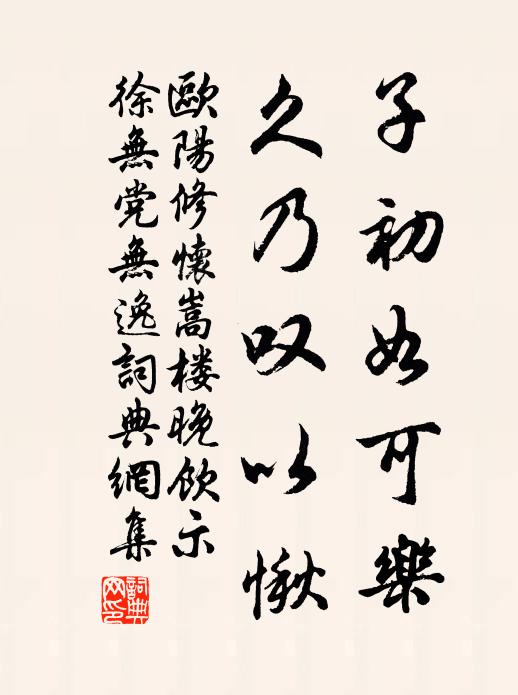 子初如可樂
久乃叹以愀
歐陽修懷嵩楼晚飲示
徐無党無逸詞典網集
詞典
网印